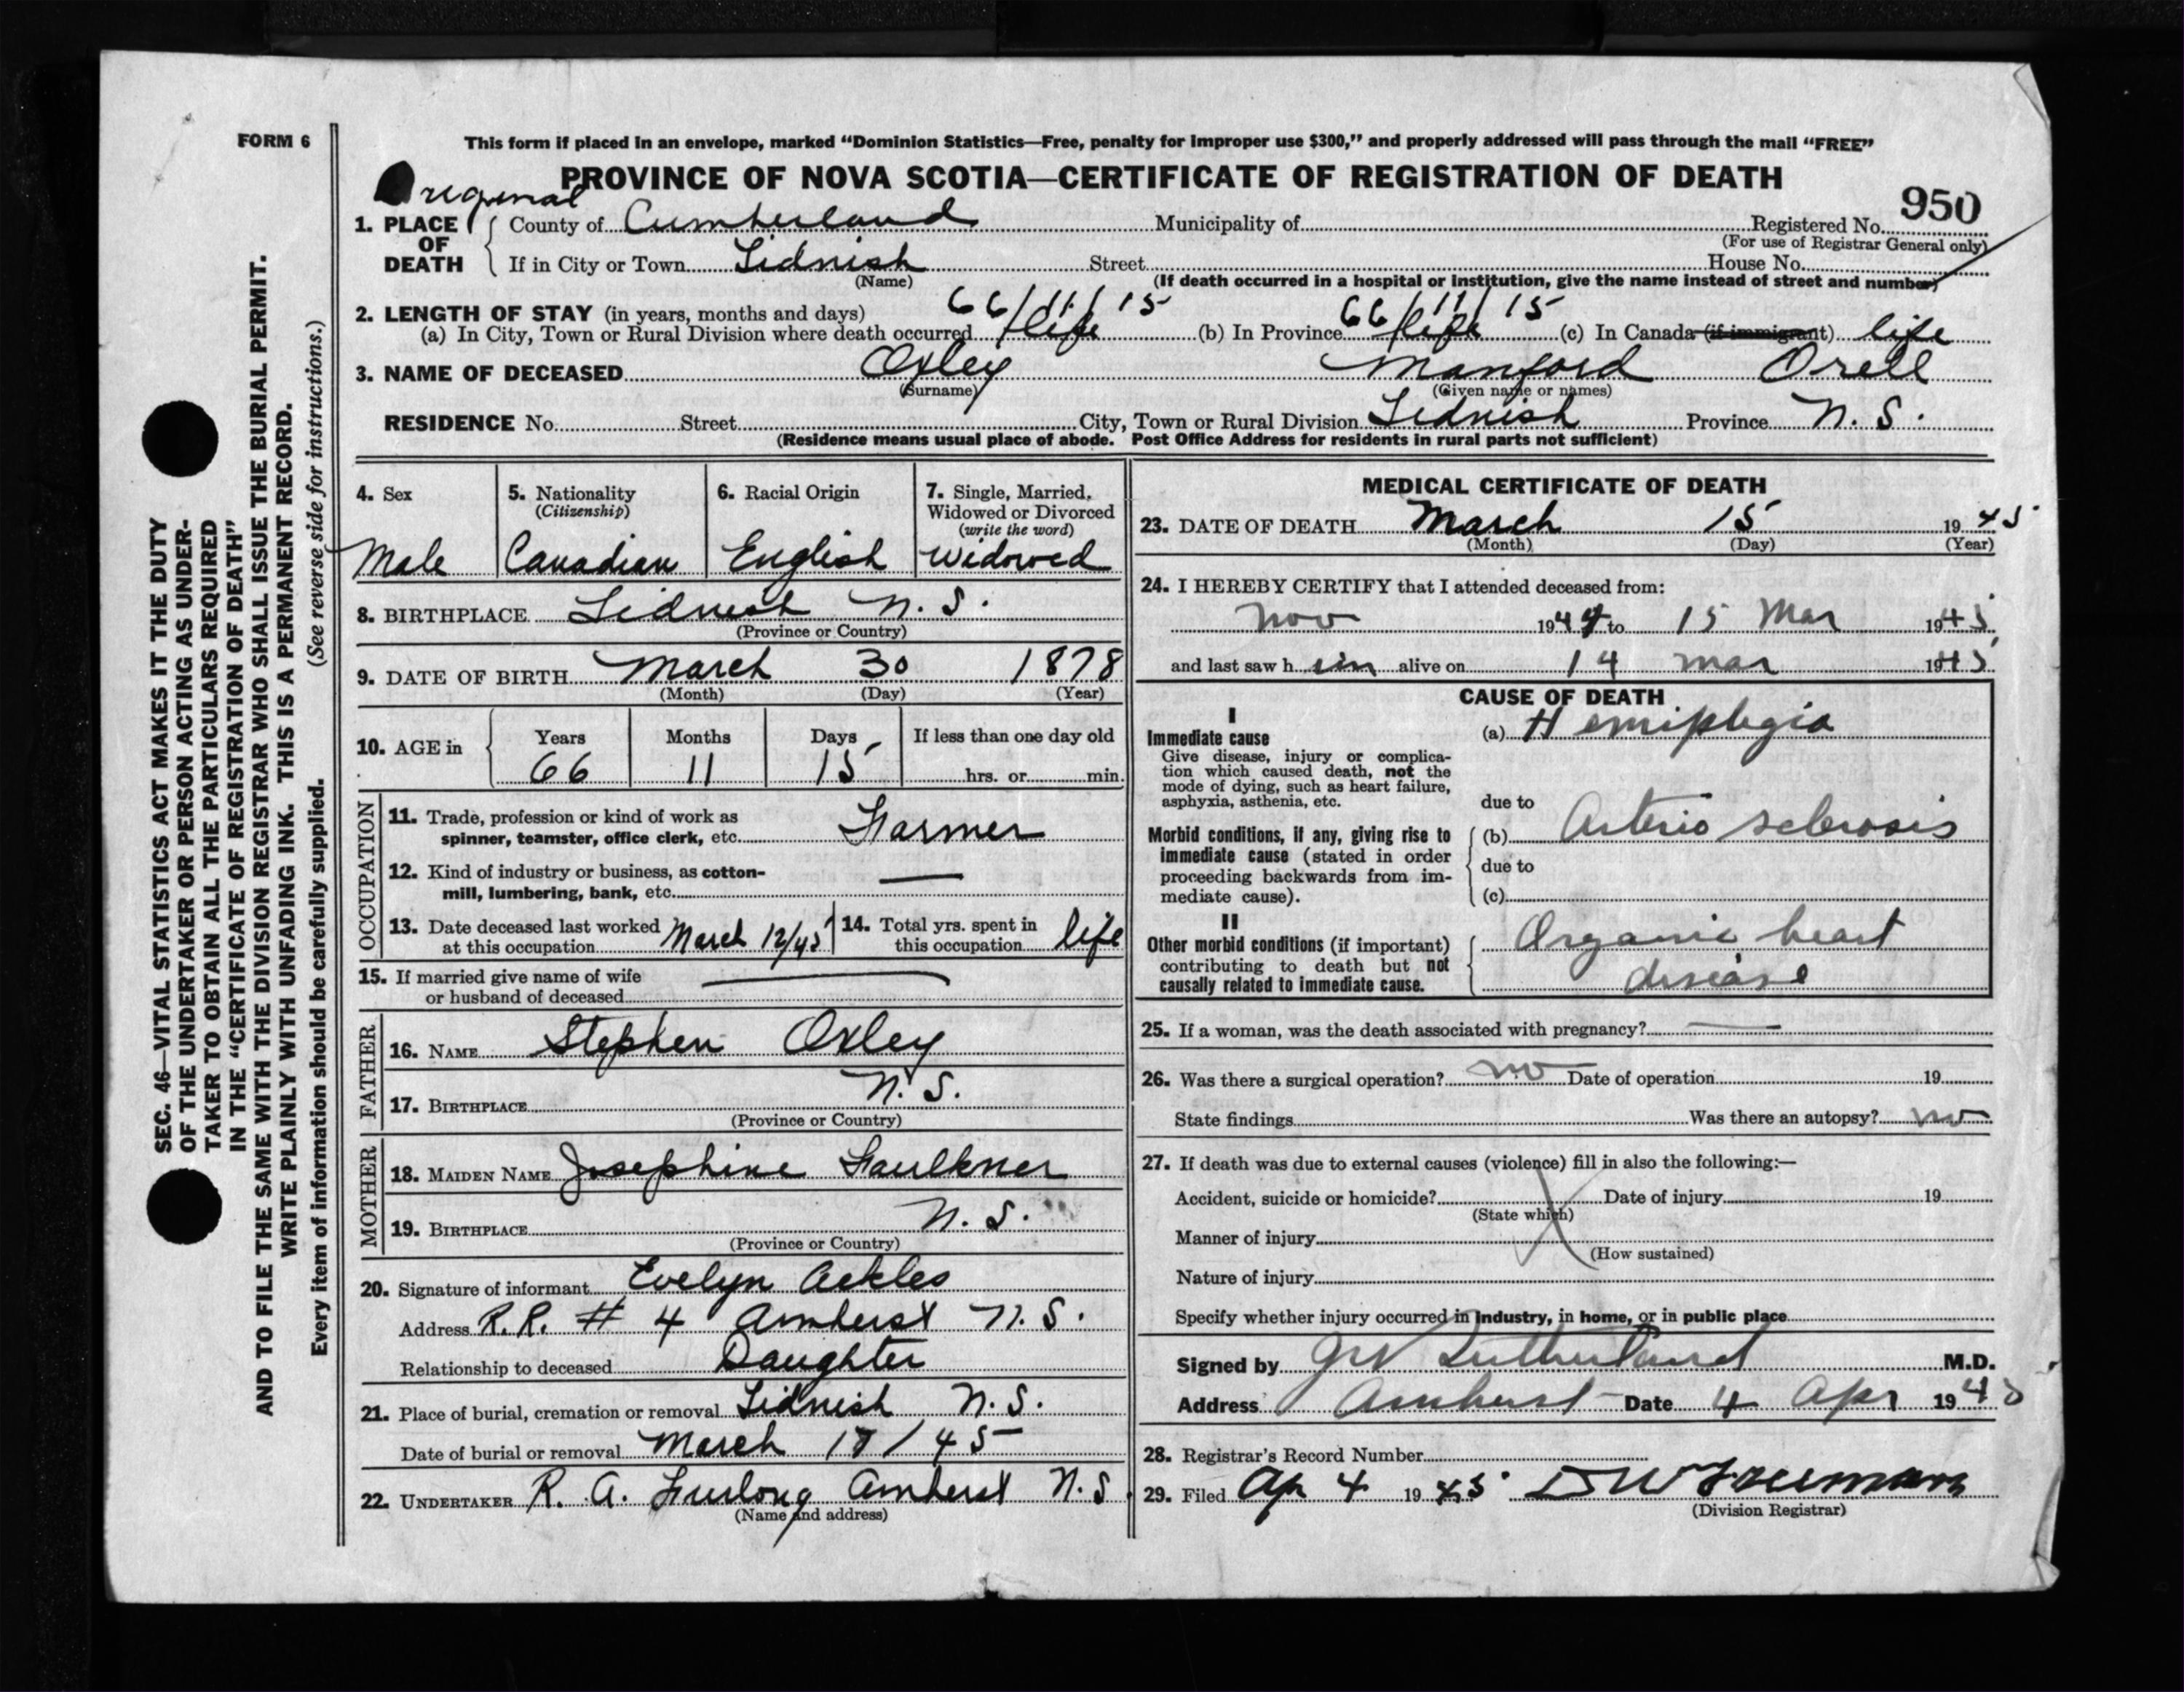 FORM 6
This form if placed in an envelope, marked "Dominion Statistics—Free, penalty for improper use $300," and properly addressed will pass through the mail "FREE"
Original
PROVINCE OF NOVA SCOTIA—CERTIFICATE OF REGISTRATION OF DEATH
950
1. PLACE OF DEATH County of Cumberland Municipality of Registered No.
(For use of Registrar General only)
If in City or Town Lidnish Street House No.
(Name) (If death occurred in a hospital or institution, give the name instead of street and number)
2. LENGTH OF STAY (in years, months and days) 66/11/15 66/11/15
(a) In City, Town or Rural Division where death occurred life (b) In Province life (c) In Canada (if immigrant) life
3. NAME OF DECEASED Oxley Manford Orell
(Surname) (Given name or names)
RESIDENCE No. Street City, Town or Rural Division Lidnish Province N. S.
(Residence means usual place of abode. Post Office Address for residents in rural parts not sufficient)
4. Sex Male
5. Nationality (Citizenship) Canadian
6. Racial Origin English
7. Single, Married, Widowed or Divorced (write the word) Widowed
8. BIRTHPLACE Lidnish N. S.
(Province or Country)
9. DATE OF BIRTH March 30 1878
(Month) (Day) (Year)
10. AGE in Years Months Days If less than one day old
66 11 15 hrs. or min.
OCCUPATION
11. Trade, profession or kind of work as
spinner, teamster, office clerk, etc. Farmer
12. Kind of industry or business, as cotton-
mill, lumbering, bank, etc. —
13. Date deceased last worked
at this occupation March 12/45
14. Total yrs. spent in
this occupation life
15. If married give name of wife
or husband of deceased —
FATHER
16. NAME Stephen Oxley
17. BIRTHPLACE N. S.
(Province or Country)
MOTHER
18. MAIDEN NAME Josephine Faulkner
19. BIRTHPLACE N. S.
(Province or Country)
20. Signature of informant Evelyn Ackles
Address R. R. # 4 Amherst N. S.
Relationship to deceased Daughter
21. Place of burial, cremation or removal Lidnish N. S.
Date of burial or removal March 17/45
22. UNDERTAKER R. A. Furlong Amherst N. S.
(Name and address)
MEDICAL CERTIFICATE OF DEATH
23. DATE OF DEATH March 15 1945
(Month) (Day) (Year)
24. I HEREBY CERTIFY that I attended deceased from:
Nov 1944 to 15 Mar 1945
and last saw him alive on 14 mar 1945
CAUSE OF DEATH
I
Immediate cause (a) Hemiplegia
Give disease, injury or complica-
tion which caused death, not the
mode of dying, such as heart failure,
asphyxia, asthenia, etc.
due to
Morbid conditions, if any, giving rise to (b) Arterio sclerosis
immediate cause (stated in order due to
proceeding backwards from im-
mediate cause). (c)
II
Other morbid conditions (if important) Organic heart
contributing to death but not disease
causally related to immediate cause.
25. If a woman, was the death associated with pregnancy? —
26. Was there a surgical operation? no Date of operation 19
State findings Was there an autopsy? no
27. If death was due to external causes (violence) fill in also the following:—
Accident, suicide or homicide? Date of injury 19
(State which)
Manner of injury
(How sustained)
Nature of injury
Specify whether injury occurred in industry, in home, or in public place
Signed by Sutherland M.D.
Address Amherst Date 4 Apr 1945
28. Registrar's Record Number
29. Filed Ap 4 1945 D W Freeman
(Division Registrar)
SEC. 46—VITAL STATISTICS ACT MAKES IT THE DUTY
OF THE UNDERTAKER OR PERSON ACTING AS UNDER-
TAKER TO OBTAIN ALL THE PARTICULARS REQUIRED
IN THE "CERTIFICATE OF REGISTRATION OF DEATH"
AND TO FILE THE SAME WITH THE DIVISION REGISTRAR WHO SHALL ISSUE THE BURIAL PERMIT.
WRITE PLAINLY WITH UNFADING INK. THIS IS A PERMANENT RECORD.
Every item of information should be carefully supplied. (See reverse side for instructions.)